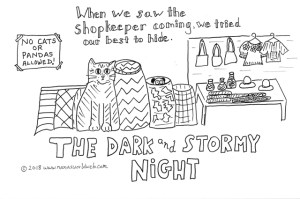 When we saw the
shopkeeper coming, we tried
our best to hide.
NO CATS
OR
PANDAS
ALLOWED!
THE DARK and STORMY
NIGHT